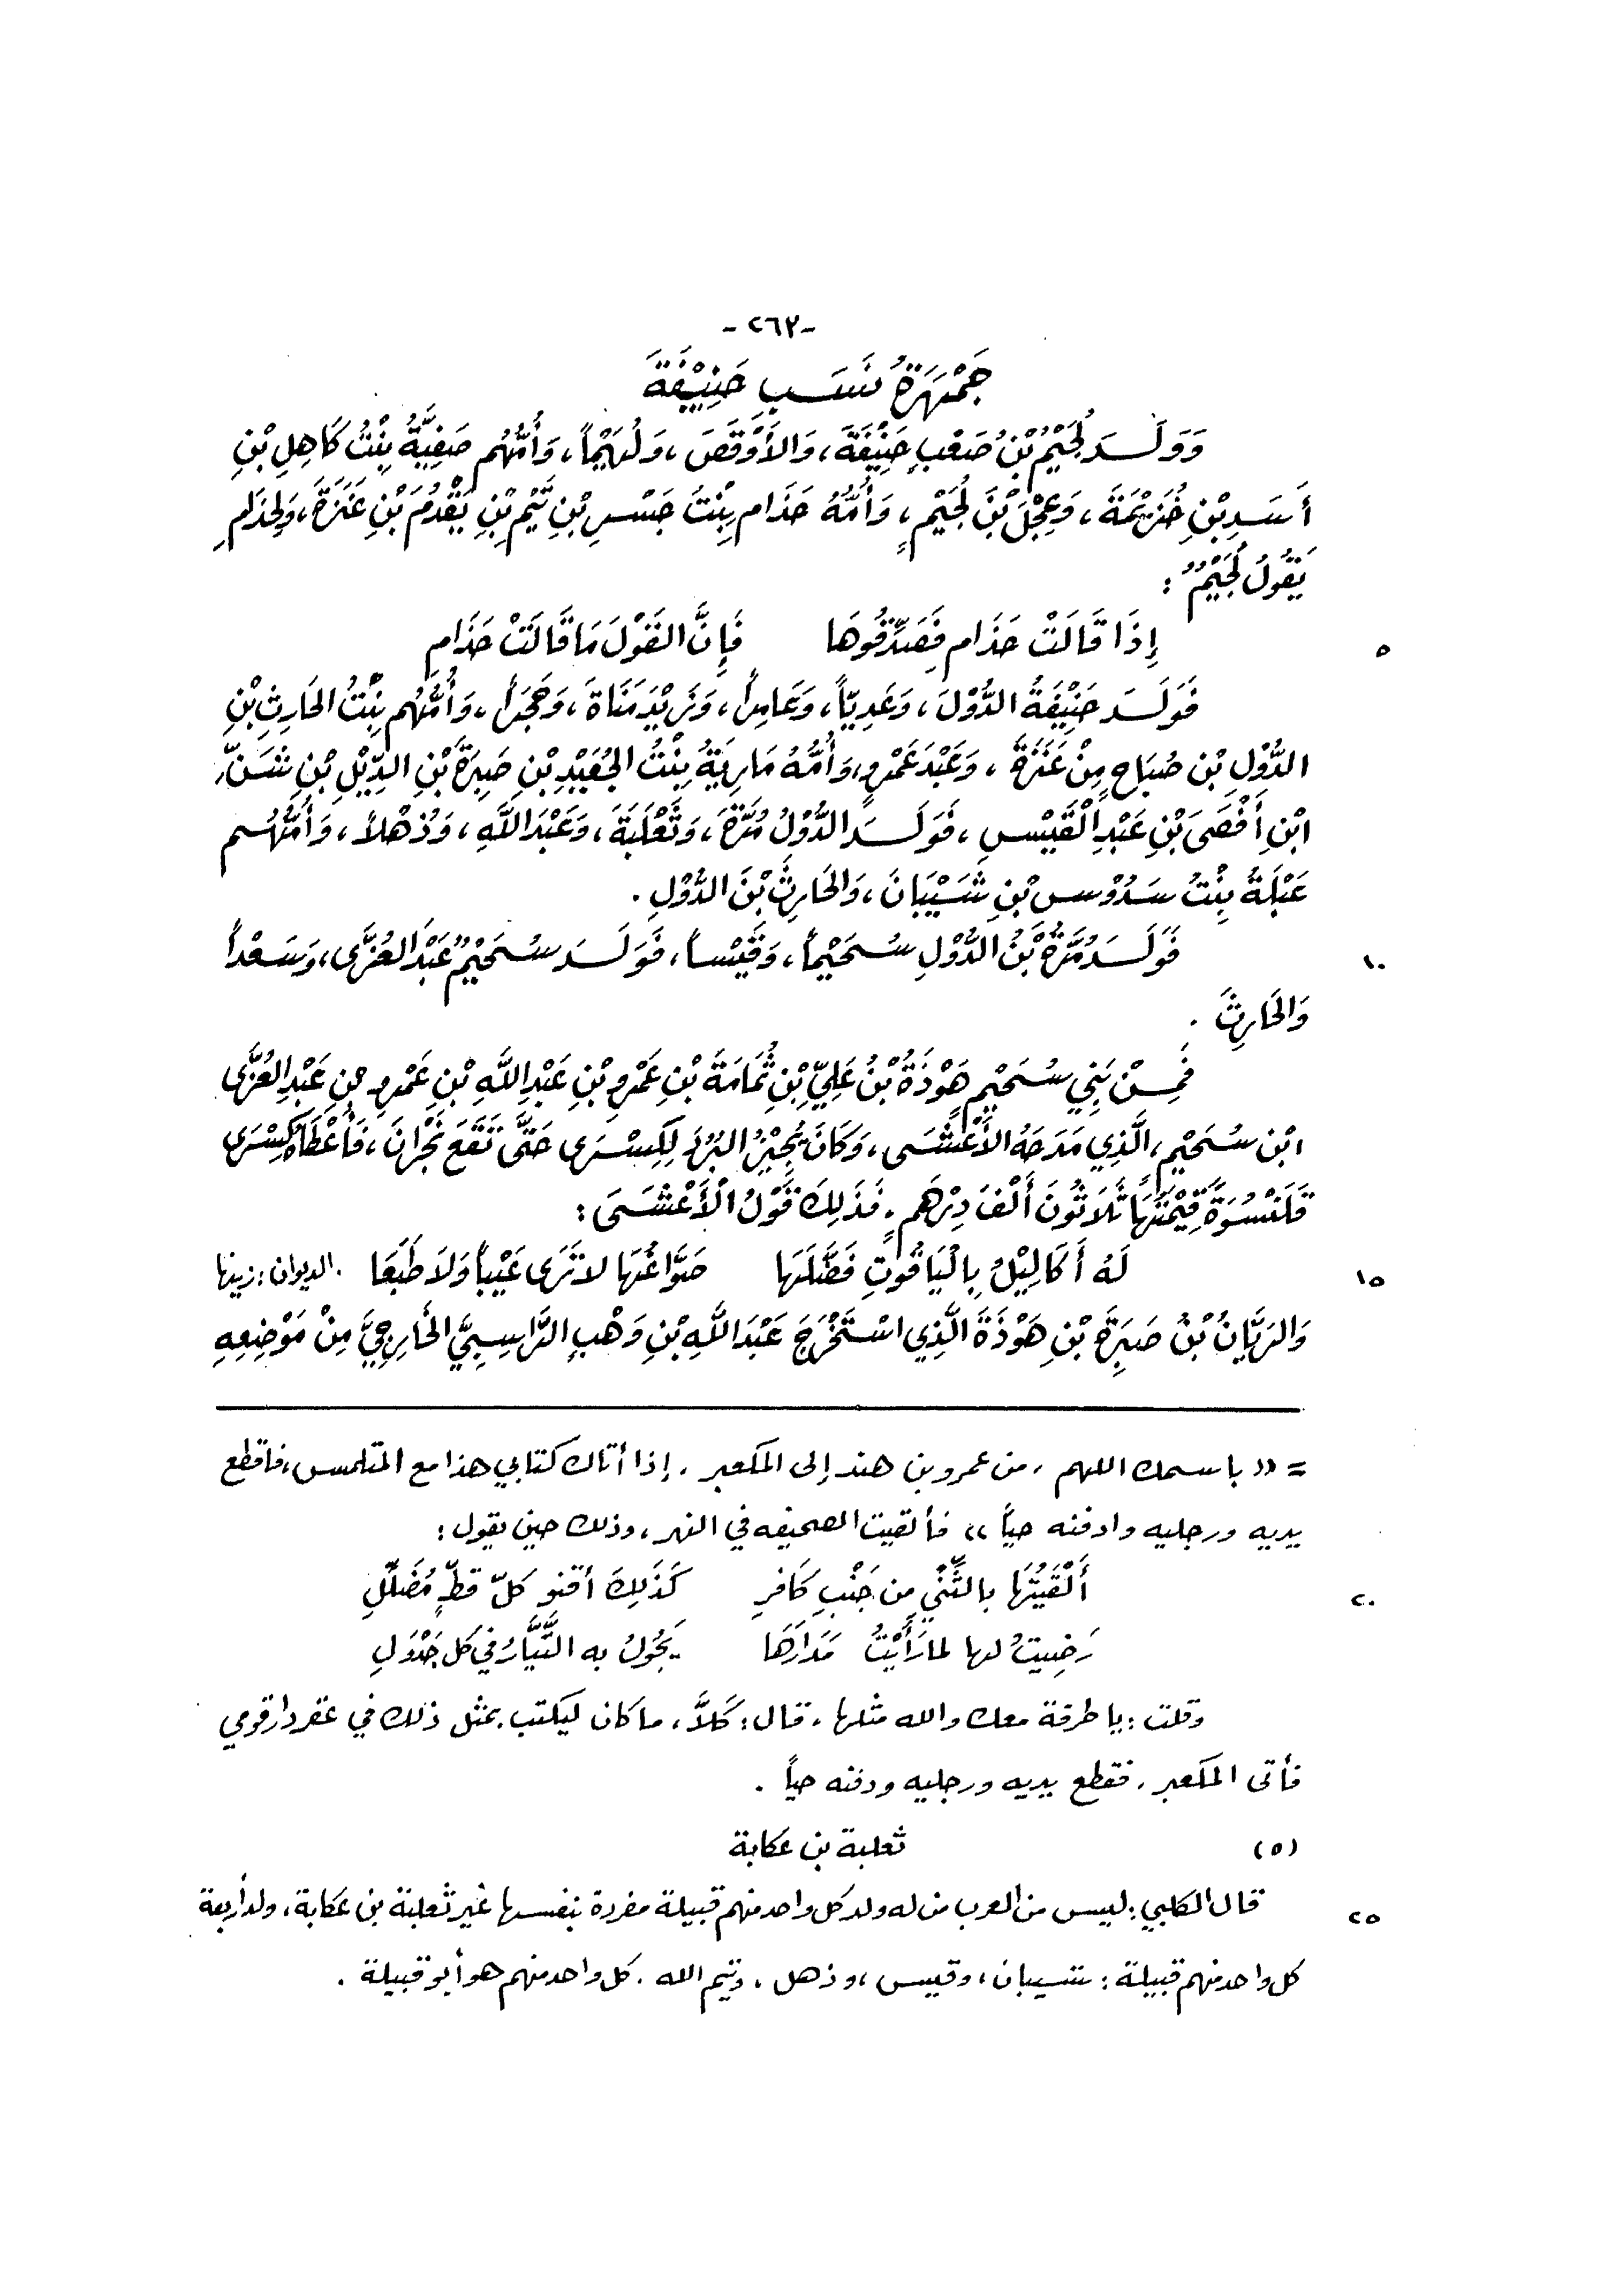 -٢٦٢-
جَمْهَرَةُ نَسَبِ حَنِيْفَةَ
وَوَلَدَ لُجَيْمُ بْنُ صَعْبٍ حَنِيْفَةَ، وَالأَوْقَصَ، وَلُهَيْمًا، وَأُمُّهُم صَفِيَّةُ بِنْتُ كَاهِلِ بْنِ
أَسَدِ بْنِ خُزَيْمَةَ، وَعِجْلَ بْنَ لُجَيْمٍ، وَأُمُّهُ حَذَامِ بِنْتُ جَسْرِ بْنِ تَيْمِ بْنِ يَقْدُمَ بْنِ عَنَزَةَ، وَلِحَذَامِ
يَقُولُ لُجَيْمٌ:
٥
إِذَا قَالَتْ حَذَامِ فَصَدِّقُوهَا فَإِنَّ القَوْلَ مَا قَالَتْ حَذَامِ
فَوَلَدَ حَنِيْفَةُ الدُّوْلَ، وَعَدِيّاً، وَعَامِراً، وَزَيْدَ مَنَاةَ، وَحُجْراً، وَأُمُّهُم بِنْتُ الحَارِثِ بْنِ
الدُّوْلِ بْنِ صُبَاحٍ مِنْ عَنَزَةَ، وَعَبْدَ عَمْرٍو، وَأُمُّهُ مَارِيَةُ بِنْتُ الجُعَيْدِ بْنِ صَبِرَةَ بْنِ الدِّيْلِ بْنِ شَنِّ
ابْنِ أَفْصَى بْنِ عَبْدِ الْقَيْسِ، فَوَلَدَ الدُّوْلُ مُرَّةَ، وَثَعْلَبَةَ، وَعَبْدَ اللَّهِ، وَذُهْلاً، وَأُمُّهُم
عَبْلَةُ بِنْتُ سَدُوْسِ بْنِ شَيْبَانَ، وَالحَارِثَ بْنَ الدُّوْلِ.
١٠
فَوَلَدَ مُرَّةُ بْنُ الدُّوْلِ سُحَيْماً، وَقَيْساً، فَوَلَدَ سُحَيْمٌ عَبْدَ العُزَّى، وَسَعْداً
وَالحَارِثَ.
فَمِنْ بَنِي سُحَيْمٍ هَوْذَةُ بْنُ عَلِيِّ بْنِ ثُمَامَةَ بْنِ عَمْرِو بْنِ عَبْدِ اللَّهِ بْنِ عَمْرِو بْنِ عَبْدِ العُزَّى
ابْنِ سُحَيْمٍ، الَّذِي مَدَحَهُ الأَعْشَى، وَكَانَ يُجِيْزُ البُرُدَ لِكِسْرَى حَتَّى تَقَعَ نَجْرَانَ، فَأَعْطَاهُ كِسْرَى
قَلَنْسُوَةً قِيْمَتُهَا ثَلاَثُونَ أَلْفَ دِرْهَمٍ، فَذَلِكَ قَوْلُ الْأَعْشَى:
١٥
لَهُ أَكَالِيْلُ بِالْيَاقُوتِ فَضَّلَهَا صَوَّاغُهَا لاتَرَى عَيْباً وَلاَ طَبَعَا . الديوان: زينها
وَالرَيَّانُ بْنُ صَبِرَةَ بْنِ هَوْذَةَ الَّذِي اسْتَخْرَجَ عَبْدَ اللَّهِ بْنِ وَهْبٍ الرَّاسِبِيَّ الخَارِجِيَّ مِنْ مَوْضِعِهِ
= «باسمك اللهم، من عمرو بن هند إلى المكعبر. إذا أتاك كتابي هذا مع المتلمس، فاقطع
يديه ورجليه وادفنه حياً» فألقيت الصحيفه في النهر، وذلك حين يقول:
٢٠
أَلْقَيْتُهَا بالثَّنْيِ من جَنْبِ كَافرِ كَذَلِكَ أقنو كلّ قطٍّ مُضَلَّلِ
رَضِيتُ لها لما رَأَيْتُ مَدَارَهَا يَجُولُ به التَّيَّارُ في كل جَدْوَلِ
وقلت: يا طرفة معك والله مثلها، قال: كَلاَّ، ما كان ليكتب بمثل ذلك في عقر دار قومي
فأتى المكعبر، فقطع يديه ورجليه ودفنه حياً.
(٥) ثعلبة بن عكابة
٢٥
قال الكلبي: ليس من العرب من له ولد كل واحد منهم قبيلة مفردة بنفسها غير ثعلبة بن عكابة، ولد أربعة
كل واحد منهم قبيلة: شيبان، وقيس، وذهل، وتيم الله. كل واحد منهم هو أبو قبيلة.